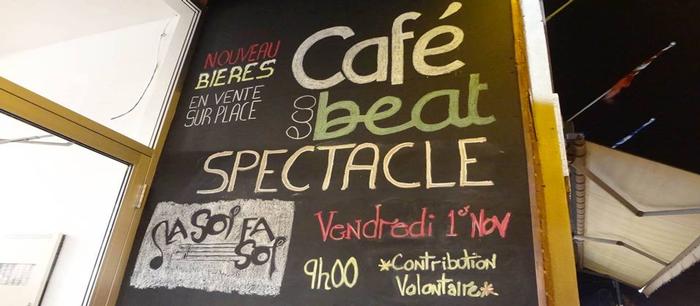 NOUVEAU
BIERES
EN VENTE
SUR PLACE
Café
eco beat
SPECTACLE
LA SOI FA
SOI
Vendredi 1er NOV
9h00
*Contribution
Volontaire*